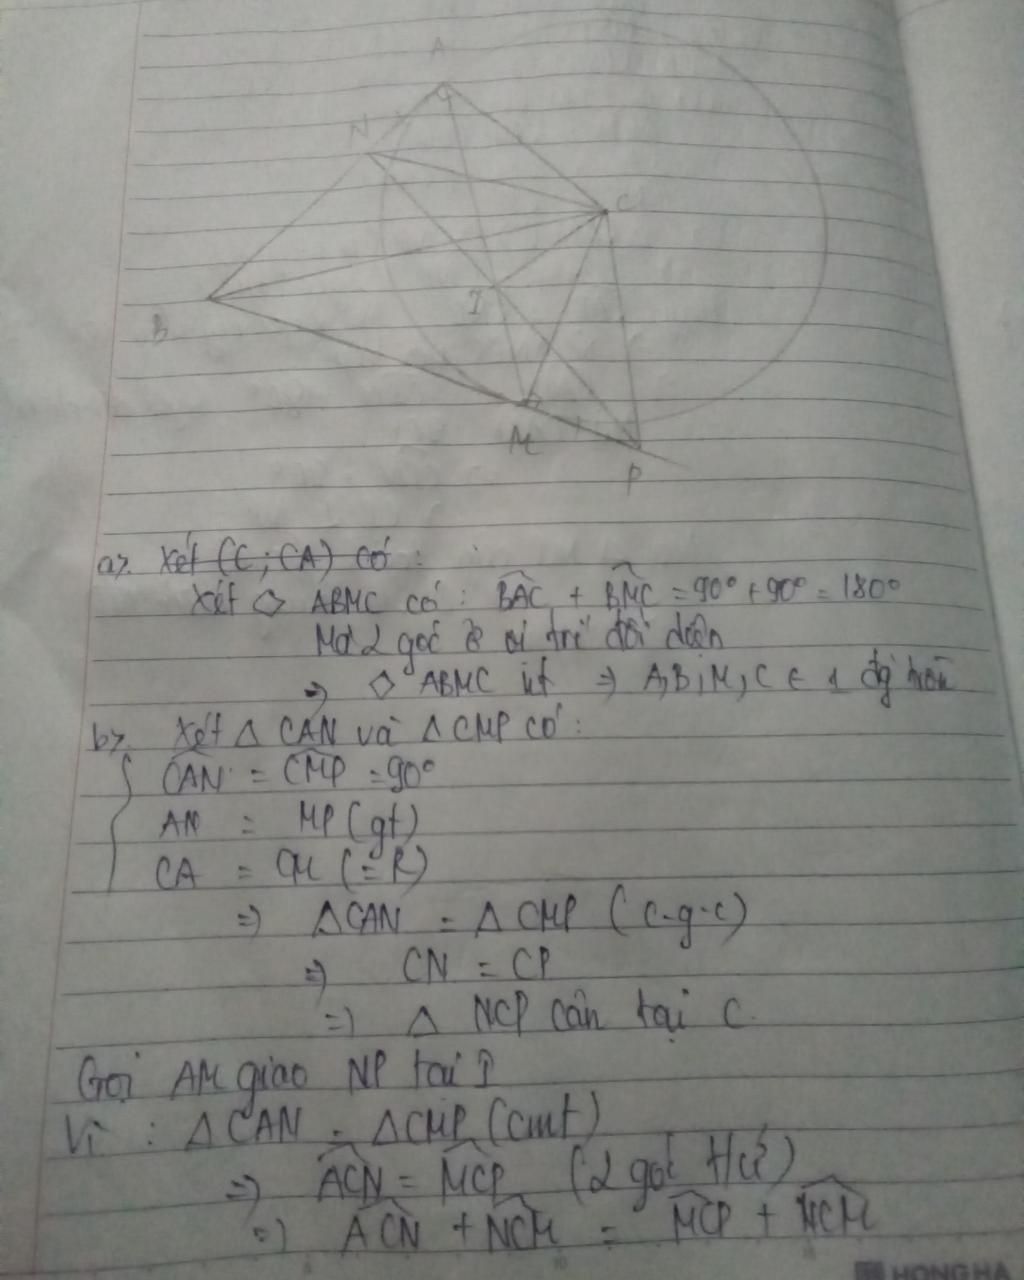 A
N
C
I
B
M
P
a>. Xét (C; CA) có :
Xét ◇ ABMC có : BAC + BMC = 90° + 90° = 180°
Mà 2 góc ở vị trí đối diện
=> ◇ ABMC nt => A,B,M,C ∈ 1 đg tròn
b>. Xét Δ CAN và Δ CMP có :
CAN = CMP = 90°
AN = MP (gt)
CA = CM (= R)
=> ΔCAN = ΔCMP (c-g-c)
=> CN = CP
=> Δ NCP cân tại C.
Gọi AM giao NP tại I
Vì : ΔCAN = ΔCMP (cmt)
=> ACN = MCP (2 góc t/ứ)
=> ACN + NCM = MCP + NCM
HONG HA